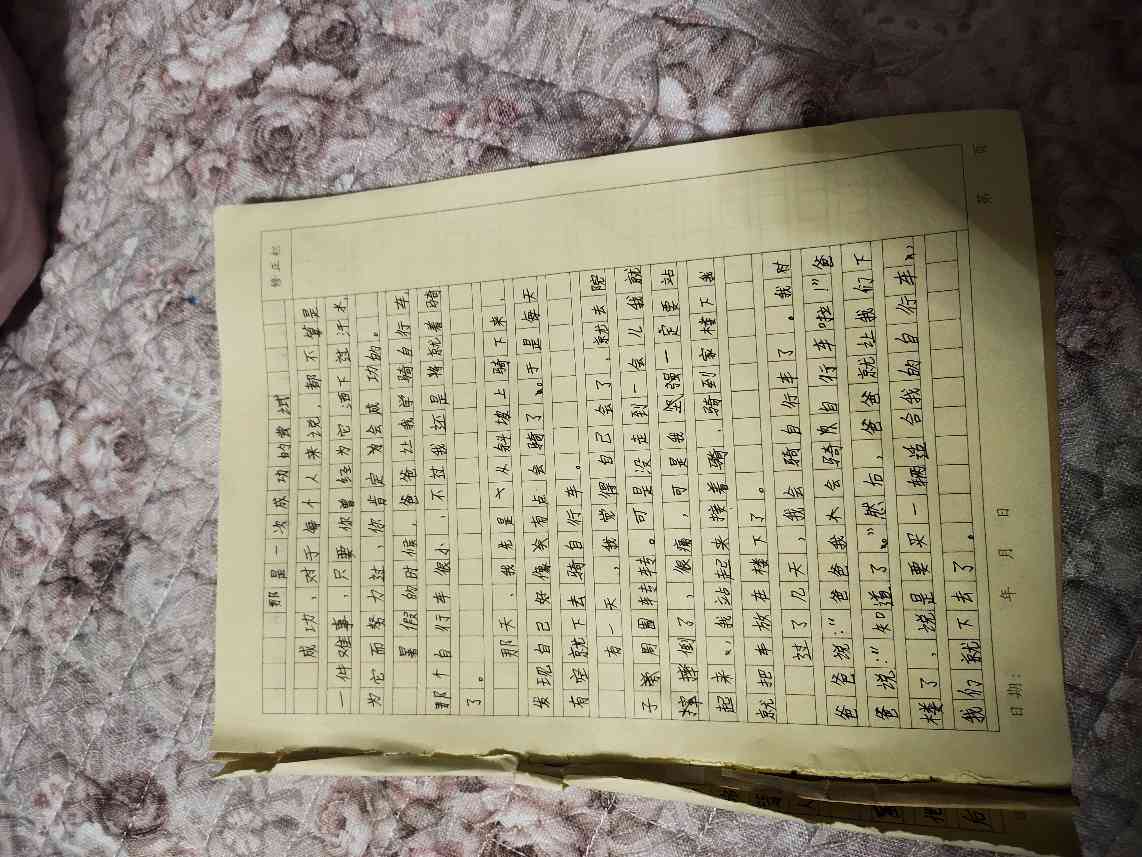 修正栏
那是一次成功的尝试
成功,对于每个人来说都不算是
一件难事,只要你曾经为它洒下过汗水,
为它而努力过,你肯定为会成功的。
暑假的时候,爸爸让我学骑自行车,
那个自行车很小,不过我还是将就着骑
了。
那天,我先是从斜坡上骑下来,
发现自己好像突有点会骑了。于是每天
有空就下去骑自行车。
有一天,我觉得自己会了,就去院
子周围转转。可是没走到一会儿我就
摔倒了,很痛,可是我坚强一定要站
起来,我站起来接着骑,骑到家楼下我
就把车放在楼下了。
过了几天,我会骑自行车了。我对
爸爸说:“爸爸我木会骑自行车啦!”爸
爸说:“知道了。”然后,爸爸就让我们下
楼了,说是要买一辆益合我的自行车。
我们就下去了。
日期: 年 月 日 第 页